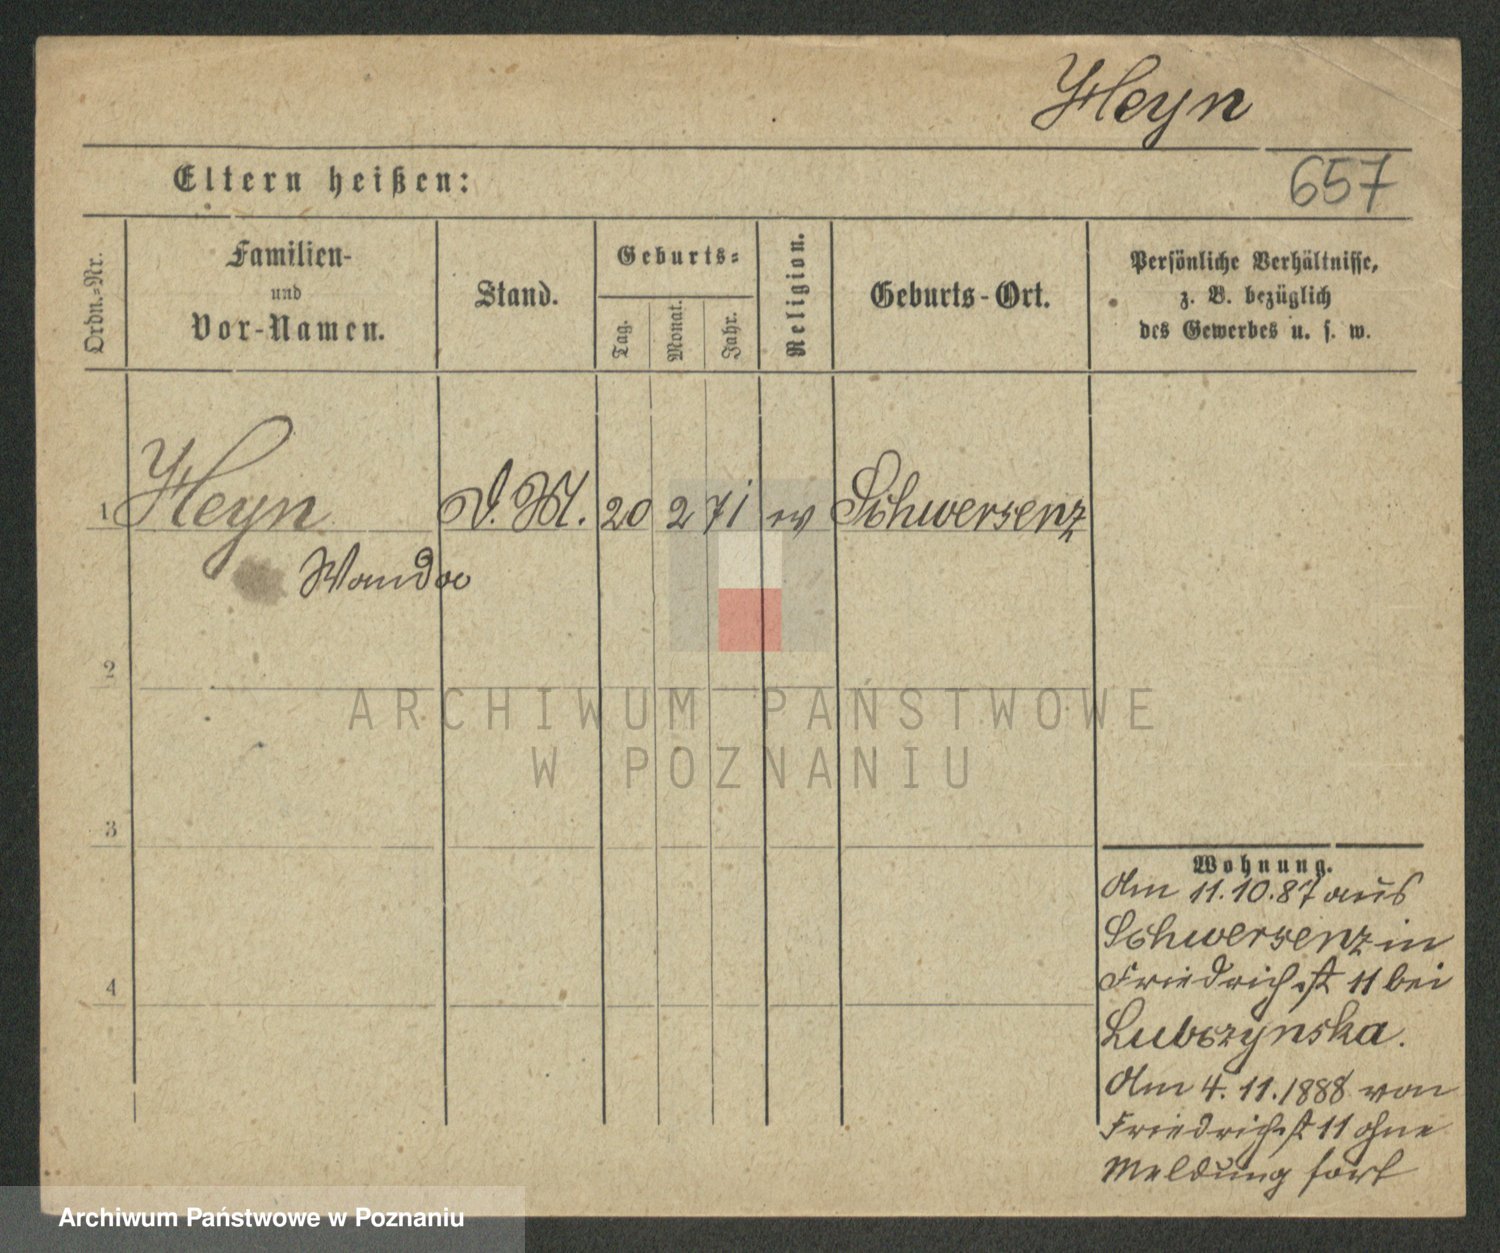 Heyn
657
Eltern heißen:
Ordn.-Nr.
Familien-
und
Vor-Namen.
Stand.
Geburts-
Tag.
Monat.
Jahr.
Religion.
Geburts-Ort.
Persönliche Verhältnisse,
z. B. bezüglich
des Gewerbes u. s. w.
1 Heyn D. M. 20 2 71 ev Schwersenz
Wanda
2
3
4
ARCHIWUM PAŃSTWOWE
W POZNANIU
Wohnung.
Am 11.10.87 aus
Schwersenz in
Friedrichst 11 bei
Lubczynska.
Am 4.11.1888 von
Friedrichst 11 ohne
Meldung fort
Archiwum Państwowe w Poznaniu